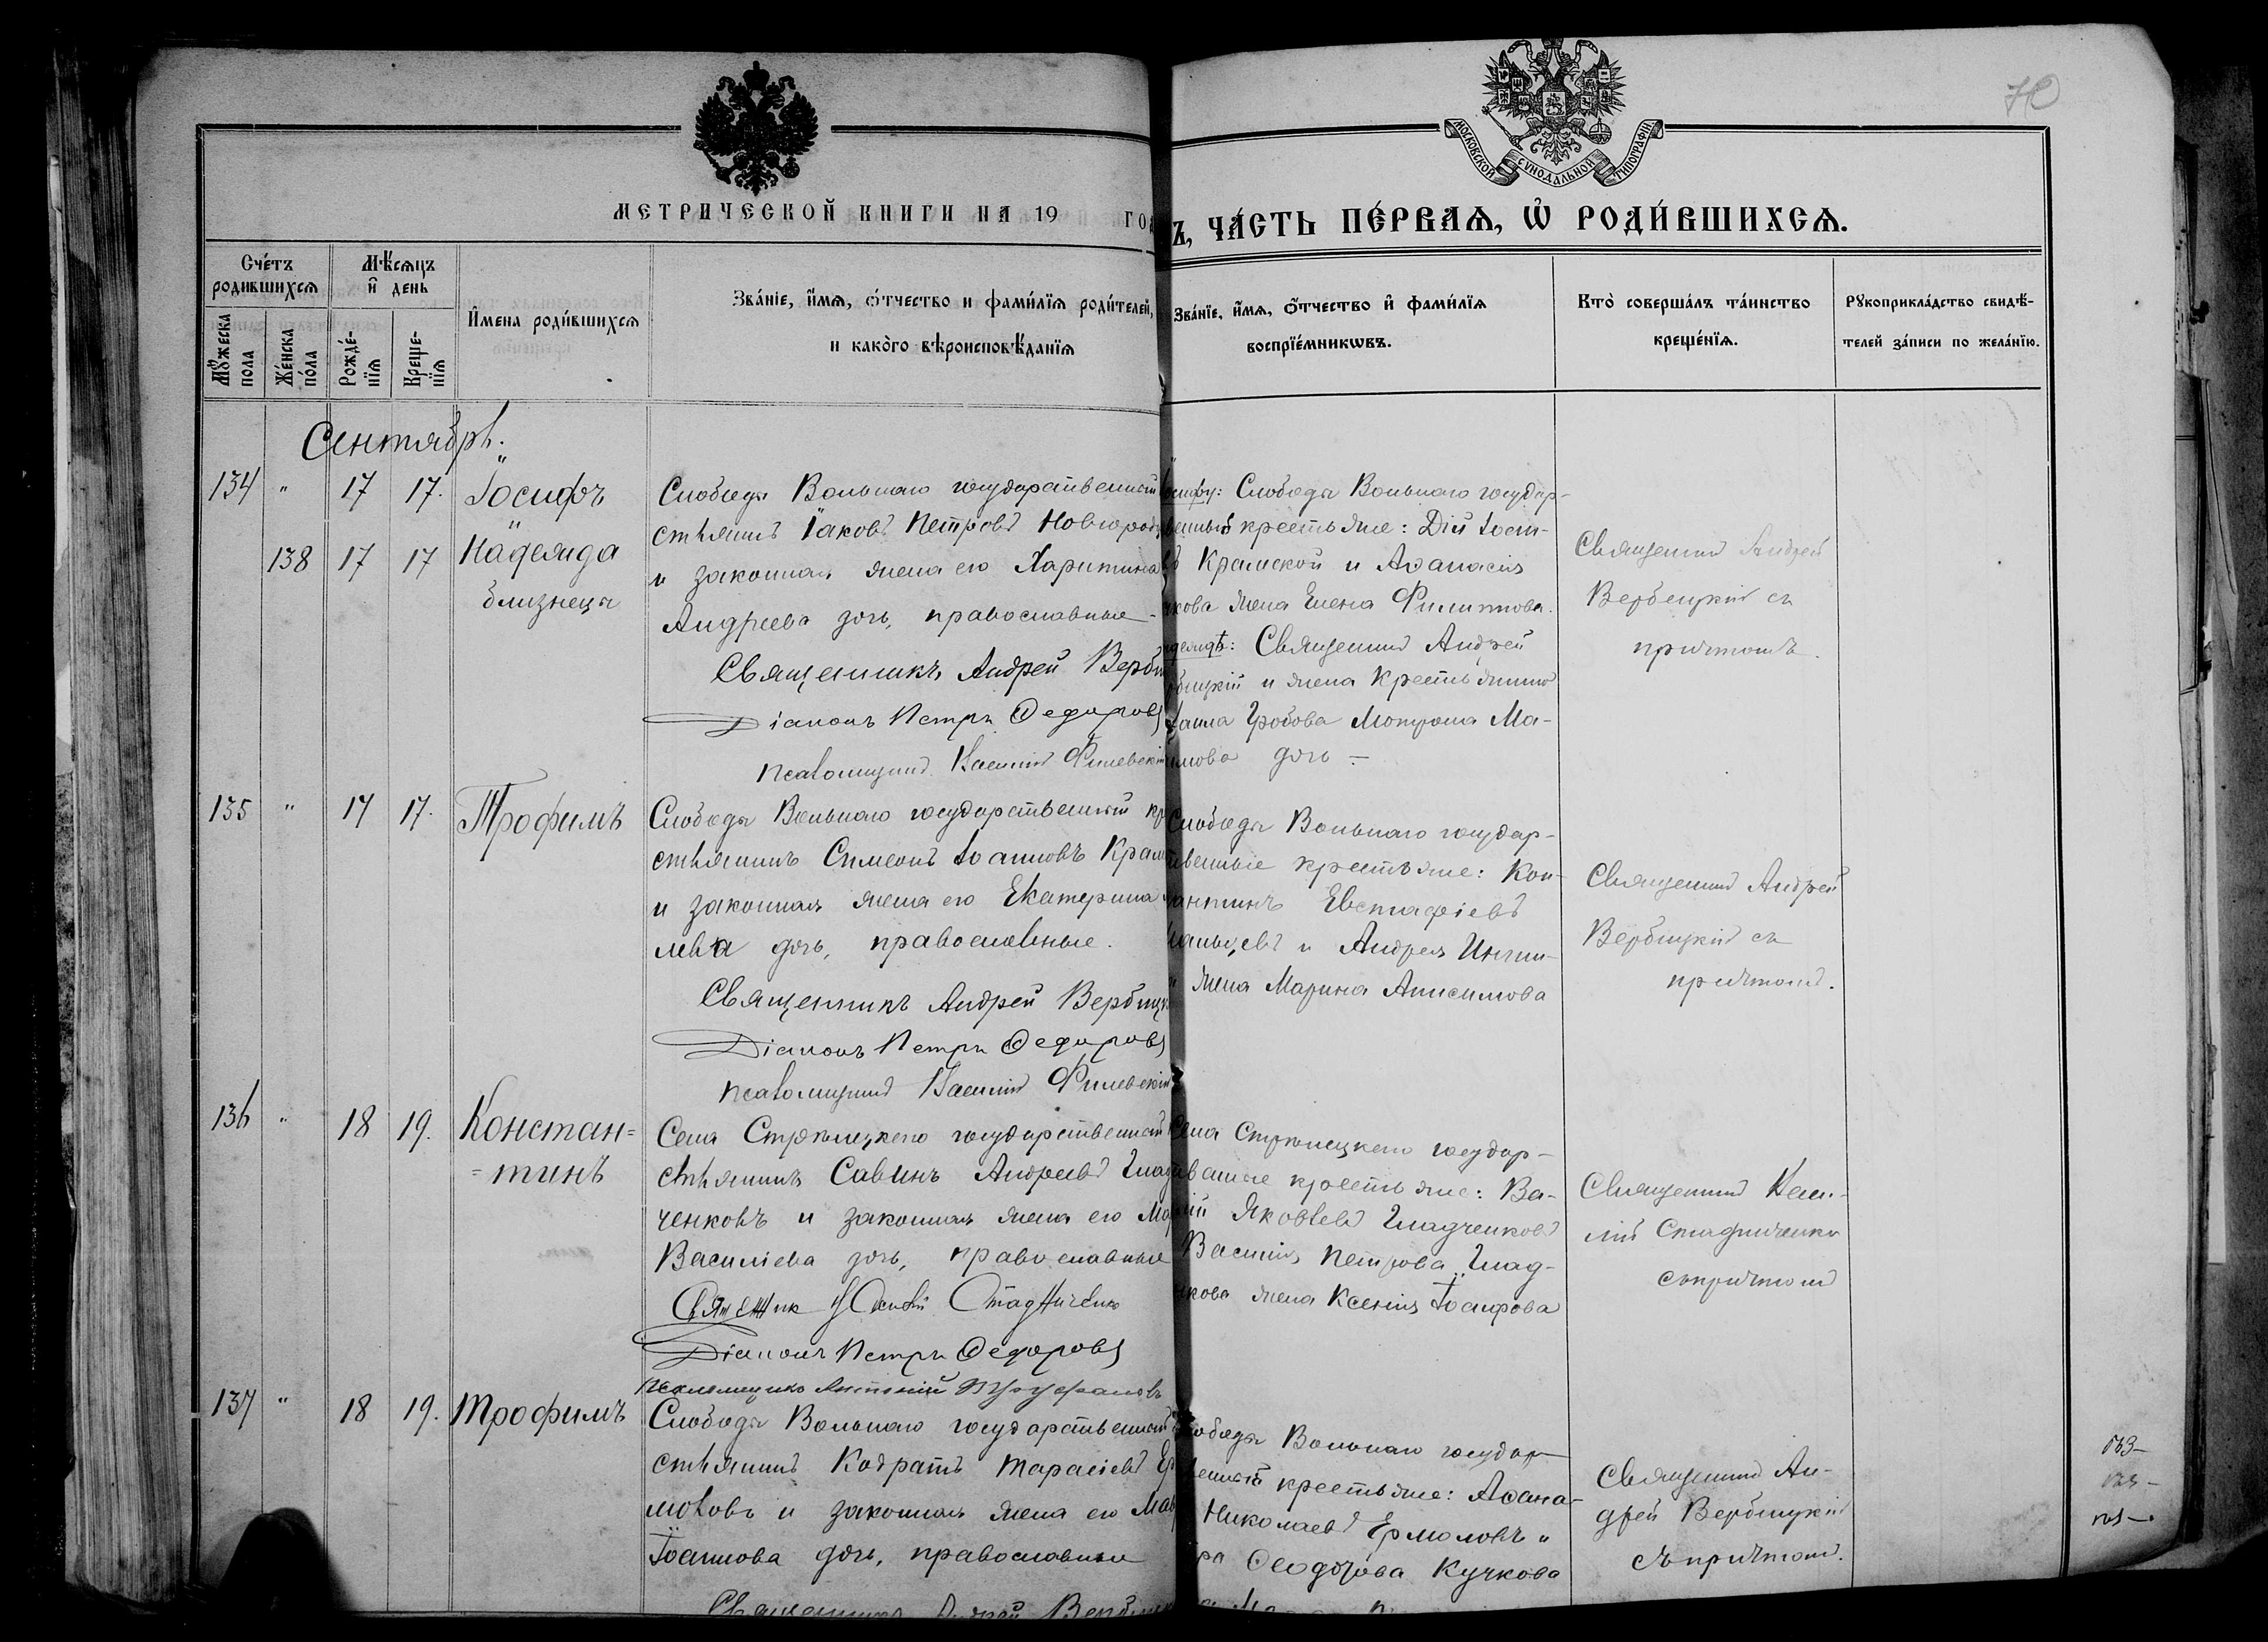 70
МОСКОВСКОЙ СѴНОДАЛЬНОЙ ТИПОГРАФІИ
МЕТРИЧЕСКОЙ КНИГИ НА 19 ГО
Ъ, ЧА́СТЬ ПЕ́РВАѦ, Ѡ҆ РОДИ́ВШИХСѦ.
Сче́тъ родившихсѧ
Мѣ́сѧцъ и҆ день
Мꙋ́жеска пола
Же́нска по́ла
Рожде́-нїѧ
Креще-нїѧ
И҆мена роди́вшихсѧ
Зва́нїе, и҆́мѧ, ѻ҆́тчество и фами́лїѧ роди́телей,
и како́го вѣроисповѣ́данїѧ
Зва́нїе, и҆́мѧ, ѻ҆́тчество и҆ фами́лїѧ
воспрїе́мникѡвъ.
Кто̀ соверша́лъ та́инство
креще́нїѧ.
Рꙋкоприкла́дство свидѣ́-
телей за́писи по жела́нїю.
Сентябрь.
134 " 17 17. Іосифъ
138 17 17 Надежда
близнецы
Слободы Вольнаго государственный
стьянинъ Іаковъ Петровъ Новгород
и законная жена его Харитина
Андреева дочь, православные
Священникъ Андрей Верби
Діаконъ Петръ Федоровъ
Псаломщикъ Василій Филевскій
осифу: Слободы Вольнаго государ-
венный крестьяне: Дій Іоси-
въ Крамской и Аѳанасія
чкова жена Елена Филиппова.
деждѣ: Священникъ Андрей
бицкій и жена крестьянина
Гробова Ма-
имова дочь
Священникъ Андрей
Вербицкій съ
причтомъ.
135 " 17 17. Трофимъ
Слободы Вольнаго государственный кр
стьянинъ Симеонъ Іоанновъ Крам
и законная жена его Екатерина
лева дочь, православные.
Священникъ Андрей Вербицк
Діаконъ Петръ Федоровъ
Псаломщикъ Василій Филевскій
Слободы Вольнаго государ-
твенные крестьяне: Кон-
антинъ Евстафіевъ
и Андрея
жена Марина Анисимова
Священникъ Андрей
Вербицкій съ
причтомъ.
136 " 18 19. Констан=
=тинъ
Села Стрѣлецкаго государственный
стьянинъ Савинъ Андреевъ Глад
ченковъ и законная жена его Мар
Василіева дочь, православные
Священник Стадниченко
Діаконъ Петръ Федоровъ
Псаломщикъ Антоній
Села Стрѣлецкаго государ-
твенные крестьяне: Ва-
лій Яковлевъ Гладченковъ
Василія Петрова Глад-
нкова жена Ксенія Іосифова
Священникъ
Стадниченко
съ причтомъ
137 " 18 19. Трофимъ
Слободы Вольнаго государственный
стьянинъ Кодратъ Тарасіевъ Ер
моловъ и законная жена его Мав
Іоаннова дочь, православные
Священникъ Андрей Вербицк
лободы Вольнаго государ-
венный крестьяне: Аѳана-
Николаевъ Ермоловъ и
ра Ѳеодорова Кучкова
Священникъ Ан-
дрей Вербицкій
съ причтомъ.